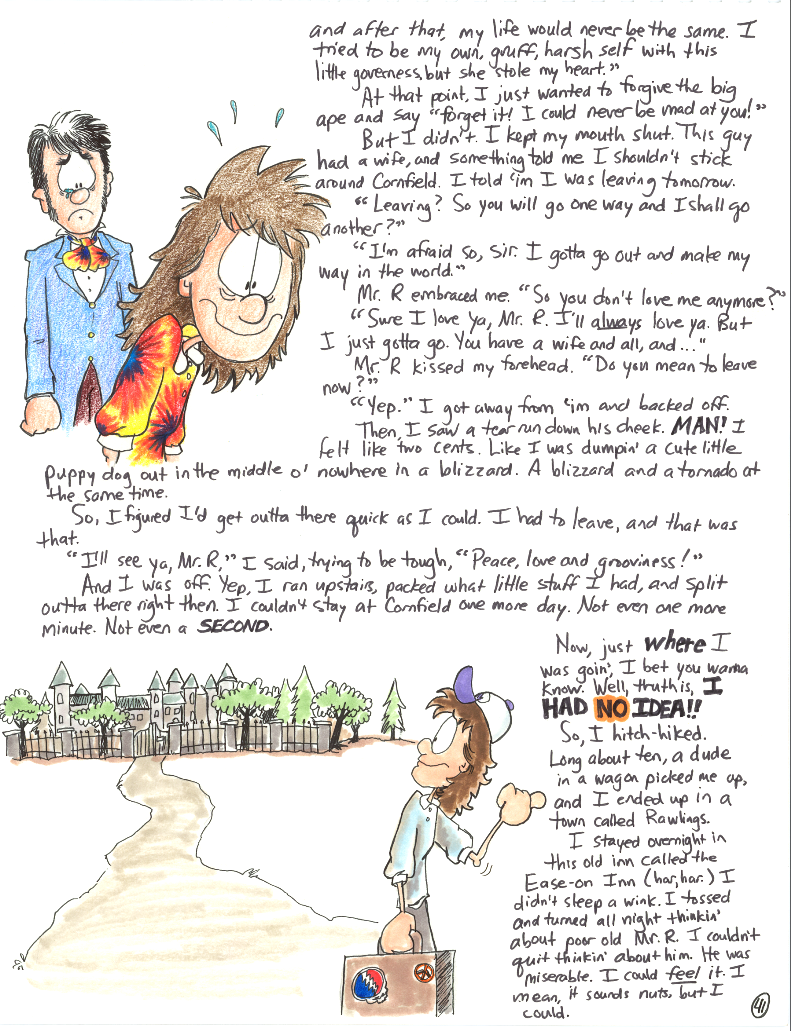 and after that, my life would never be the same. I
tried to be my own, gruff, harsh self with this
little governess, but she stole my heart."
At that point, I just wanted to forgive the big
ape and say "forget it! I could never be mad at you!"
But I didn't. I kept my mouth shut. This guy
had a wife, and something told me I shouldn't stick
around Cornfield. I told 'im I was leaving tomorrow.
"Leaving? So you will go one way and I shall go
another?"
"I'm afraid so, sir. I gotta go out and make my
way in the world."
Mr. R embraced me. "So you don't love me anymore?"
"Sure I love ya, Mr. R. I'll always love ya. But
I just gotta go. You have a wife and all, and..."
Mr. R kissed my forehead. "Do you mean to leave
now?"
"Yep." I got away from 'im and backed off.
Then, I saw a tear run down his cheek. MAN! I
felt like two cents. Like I was dumpin' a cute little
puppy dog out in the middle o' nowhere in a blizzard. A blizzard and a tornado at
the same time.
So, I figured I'd get outta there quick as I could. I had to leave, and that was
that.
"I'll see ya, Mr. R," I said, trying to be tough, "Peace, love and grooviness!"
And I was off. Yep, I ran upstairs, packed what little stuff I had, and split
outta there right then. I couldn't stay at Cornfield one more day. Not even one more
minute. Not even a SECOND.
Now, just where I
was goin', I bet you wanna
know. Well, truth is, I
HAD NO IDEA!!
So, I hitch-hiked.
Long about ten, a dude
in a wagon picked me up,
and I ended up in a
town called Rawlings.
I stayed overnight in
this old inn called the
Ease-on Inn (har, har.) I
didn't sleep a wink. I tossed
and turned all night thinkin'
about poor old Mr. R. I couldn't
quit thinkin' about him. He was
miserable. I could feel it. I
mean, it sounds nuts, but I
could.
41